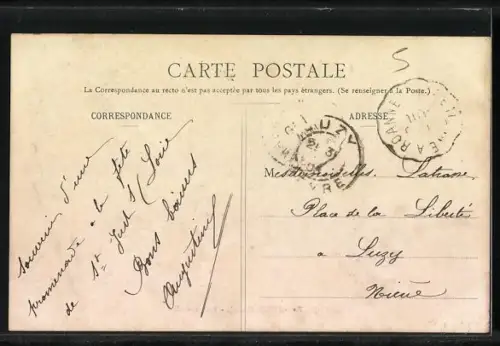 CARTE POSTALE
La Correspondance au recto n'est pas acceptée par tous les pays étrangers. (Se renseigner à la Poste.)
CORRESPONDANCE
ADRESSE
5
A ROANNE
LUZY
NIÈVRE
Souvenir d'une
promenade à la fête
de St Just s/ Loire
Bons baisers
Augustine
Mesdemoiselles Latrane
Place de la Liberté
a Luzy
Nièvre